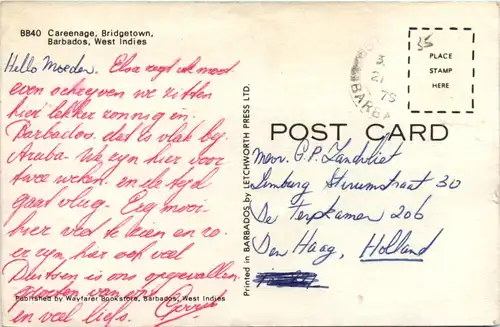 BB40 Careenage, Bridgetown,
Barbados, West Indies
Hello Moeder. Elsa zegt ik moet
even schrijven we zitten
hier lekker zonnig in
Barbados. dat is vlak bij
Aruba. We zijn hier voor
twee weken. en de tijd
gaat vlug. Erg mooi
hier veel te leren en zo.
er zijn hier ook veel
Duitsers is ons opgevallen
groeten van ons
en veel liefs. Gerrit
Published by Wayfarer Bookstore, Barbados, West Indies
Printed in BARBADOS by LETCHWORTH PRESS LTD.
35
PLACE
STAMP
HERE
21
79
BARBA
POST CARD
Mevr. G.P. Zandvliet
Limburg Stirumstraat 30
De Terpkamer 206
Den Haag, Holland